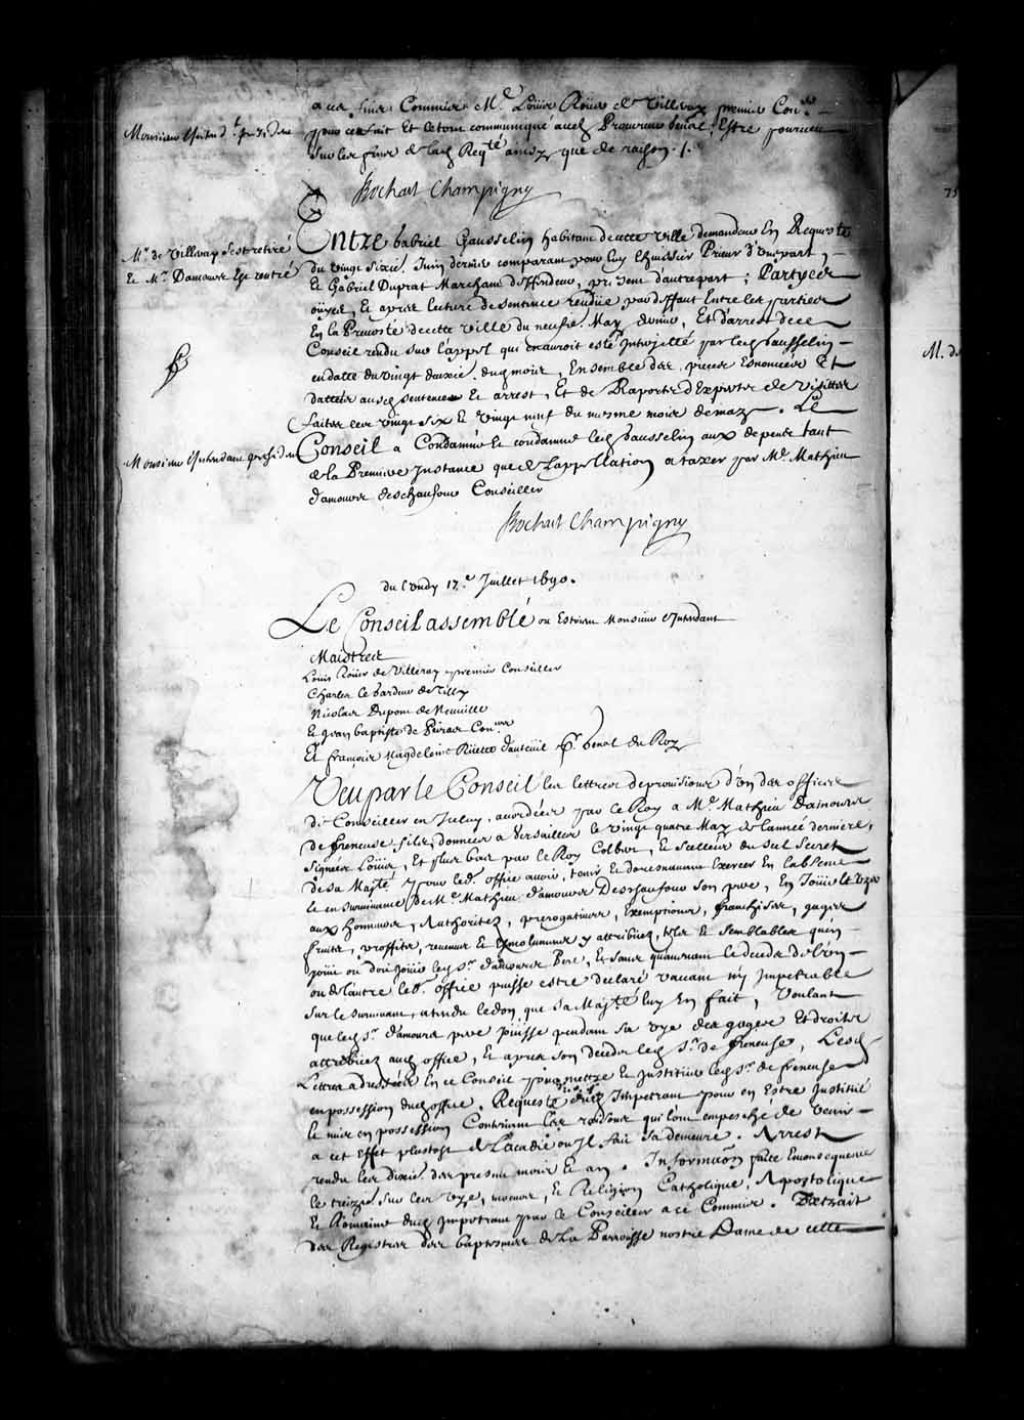 a ces fins Commis M.e Louis Roüer de Villeray premier Con.er
Monsieur l'Intend.t preside
pour ce fait Et le tout communiqué aud. Procureur general, Estre pourveu
sur les fins de lad. Req.te ainsy que de raison ./.
Bochart Champigny
Entre Gabriel Gausselin habitant de cette ville demandeur En Requeste
M.r de Villeray s'est retiré
Et M.r Damours Est rentré
du vingt sixie. Juin dernier comparant pour luy l'huissier Prieur d'une part,
Et Gabriel Duprat Marchand deffendeur, present d'autre part; Partyes
ouyes, Et apres lecture de sentence rendüe par deffaut Entre les parties
En la Prevosté de cette ville du neufie. May dernier, Et d'arrest de ce
Conseil rendu sur l'appel qui en auroit esté Interjetté par led. Gausselin
en datte du vingt deuxie. dud. mois, Ensemble des pieces Enoncées Et
dattées ausd. sentence Et arrest, Et de Raports d'Expertes de visittes
faites les vingt six Et vingt neuf du mesme mois de may. Le
Monsieur l'Intendant preside
Conseil a Condamné Et condamne led. Gausselin aux depens tant
de la Premiere Instance que de l'appellation a taxer par M.e Mathieu
damours deschaufour Conseiller
Bochart Champigny
du Lundy 17.e Juillet 1690.
Le Conseil assemblé ou Estoient Monsieur l'Intendant
Maistres
Louis Roüer de Villeray premier Conseiller
Charles le Gardeur de Tilly
Nicolas Dupont de Neuville
Et Jean baptiste de Peiras Con.ers
Et françois Magdeleine Rüette d'auteüil P.r general du Roy
Veu par le Conseil les lettres de provisions d'un des offices
de Conseiller en Iceluy, accordées par le Roy a M.e Mathieu Damours
de freneuse fils, données a Versailles le vingt quatre May de l'année derniere,
signées Loüis, Et plus bas par le Roy Colbert, Et scellées du scel secret
de sa Maj.té pour led. office avoir, tenir Et doresnavant Exercer En l'absence
Et en survivance de M.e Mathieu d'amours Deschaufour son pere, En Jouir Et User
aux honneurs, Authoritez, prerogatives, Exemptions, franchises, gages
fruits, proffits, revenus Et Emolumens y attribuez, tels Et semblables qu'en
joüit ou doit joüir led. s.r d'amours Pere, Et sans qu'avenant le deceds de l'un
ou de l'autre led. office puisse estre declaré vacant ny Impetrable
sur le survivant, attendu le don que sa Maj.té luy En fait, Voulant
que led. s.r d'amours pere puisse pendant sa vye des gages Et droits
attribuez aud. office, Et apres son deceds led. s.r de freneuse, Lesd.
Lettres adressées En ce Conseil pour mettre Et Instituer led. s.r de freneuse
en possession dud. office. Requeste dud. Impetrant pour en Estre Institué
Et mis en possession Contenant les raisons qui l'ont empesché de venir
a cet Effet plustost de Lacadie ou Il fait sa demeure. Arrest
rendu les dixie. des presens mois Et an. Information faite En consequence
le treizie. sur les vye, moeurs, Et Religion Catholique, Apostolique
Et Romaine dud. Impetrant par le Conseiller a ce Commis. Extrait
des Registres des baptesmes de la Parroisse nostre Dame de cette